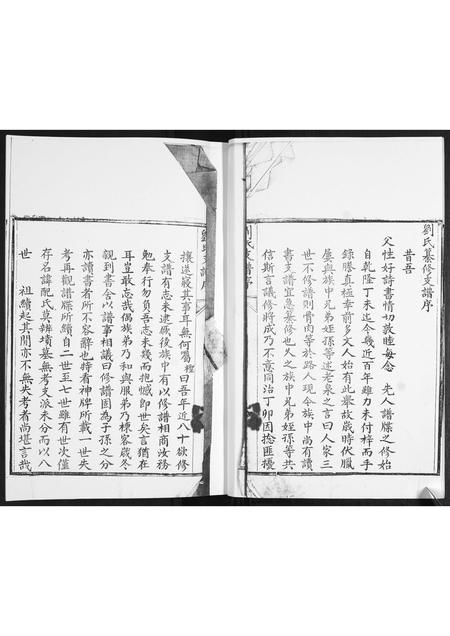 劉氏纂修支譜序
昔吾
父性好詩書情切敦睦每念　先人譜牒之修始
自乾隆丁未迄今幾近百年雖力未付梓而手
錄謄真極幸前多文人始有此舉故歲時伏臘
屢與族中兄弟姪孫等述老泉之言曰人家三
世不修譜則骨肉等於路人現今族中尚有讀
書支譜宜急纂修也久之族中兄弟姪孫等共
信斯言議修將成乃不意同治丁卯因捻匪擾
攘遂寢其事耳無何屬程曰吾年近八十欲修
支譜有志未逮厥後族中有以修譜相商汝務
勉奉行勿負吾志未幾而抱憾即世矣言猶在
耳豈敢忘哉偶族弟乃和與服弟乃棟容箴冬
親到書舍以譜事相議曰修譜因為子孫之分
亦讀書者所不容辭也持看神牌所載一世失
考再觀譜牒所續自二世至七世雖有世次僅
存名諱配氏莫辨墳墓無考支派未分而以八
世　祖續起其間亦不無失考者尚堪言哉
劉氏支譜序